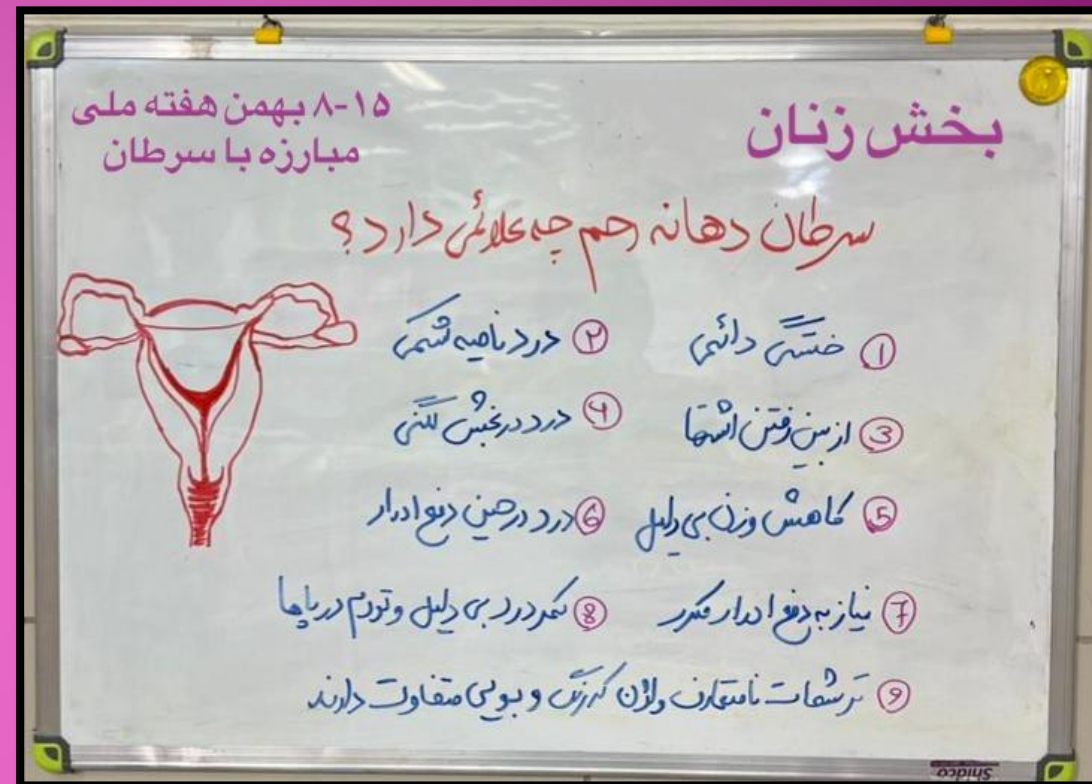 بخش زنان
۸-۱۵ بهمن هفته ملی
مبارزه با سرطان
سرطان دهانه رحم چه علائمی دارد؟
① خستگی دائمی ② درد ناحیه شکمی
③ از بین رفتن اشتها ④ درد در بخش لگنی
⑤ کاهش وزن بی دلیل ⑥ درد در حین دفع ادرار
⑦ نیاز به دفع ادرار مکرر ⑧ کمر درد بی دلیل و تورم در پاها
⑨ ترشحات نامتعارف واژن که رنگ و بویی متفاوت دارند
Shidco